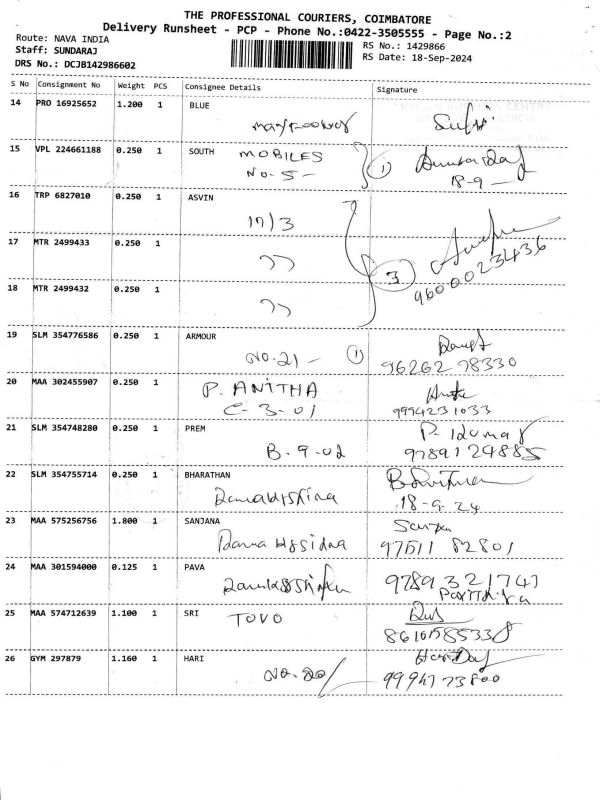 THE PROFESSIONAL COURIERS, COIMBATORE
Delivery Runsheet - PCP - Phone No.:0422-3505555 - Page No.:2
Route: NAVA INDIA
RS No.: 1429866
Staff: SUNDARAJ
RS Date: 18-Sep-2024
DRS No.: DCJB142986602
S No Consignment No Weight PCS Consignee Details Signature
14 PRO 16925652 1.200 1 BLUE
15 VPL 224661188 0.250 1 SOUTH MOBILES
No. 5 - 1 18-9
16 TRP 6827010 0.250 1 ASVIN
17/3
17 MTR 2499433 0.250 1
,, 3 9600023436
18 MTR 2499432 0.250 1
,,
19 SLM 354776586 0.250 1 ARMOUR
No. 21 - 1 96262 78330
20 MAA 302455907 0.250 1 P. ANITHA
C-3-01 9994231033
21 SLM 354748280 0.250 1 PREM P. Kumar
B-9-02 9789124885
22 SLM 354755714 0.250 1 BHARATHAN
Ramakrishna 18-9-24
23 MAA 575256756 1.800 1 SANJANA
97511 82801
24 MAA 301594000 0.125 1 PAVA 9789321741
25 MAA 574712639 1.100 1 SRI
TOVO 8610585338
26 GYM 297879 1.160 1 HARI
No. 20/ 9994773800